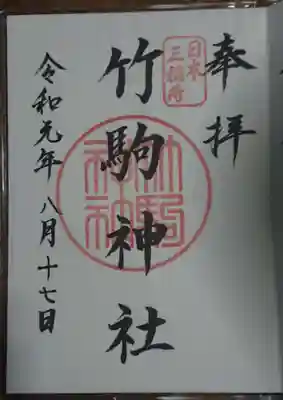 奉拝
日本
三稲荷
竹駒神社
竹駒
神社
令和元年八月十七日